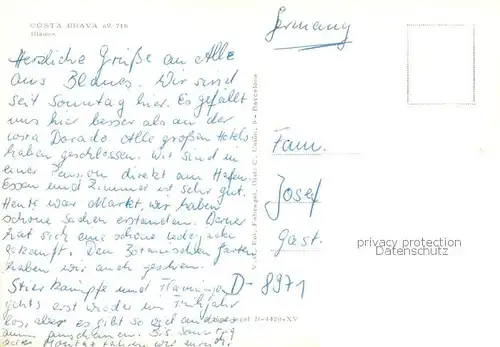 COSTA BRAVA nº 716
Blanes
Herzliche Grüße an Alle
aus Blanes. Wir sind
seit Sonntag hier. Es gefällt
uns hier besser als an der
Costa Dorado. Alle großen Hotels
haben geschlossen. Wir sind in
einer Pension direkt am Hafen.
Essen und Zimmer ist sehr gut.
Heute war Markt, wir haben
schöne Sachen erstanden.
hat sich eine schöne
gekauft. Den Botanischen Garten
haben wir auch gesehen.
Stierkämpfe und Flamingo
gehts erst wieder im Frühjahr
los, aber es gibt so viel an
zum anschauen. Bis Sonntag
oder Montag fahren wir
Barcelona
Germany
Fam.
Josef
Gast.
D-8971
privacy protection
Datenschutz